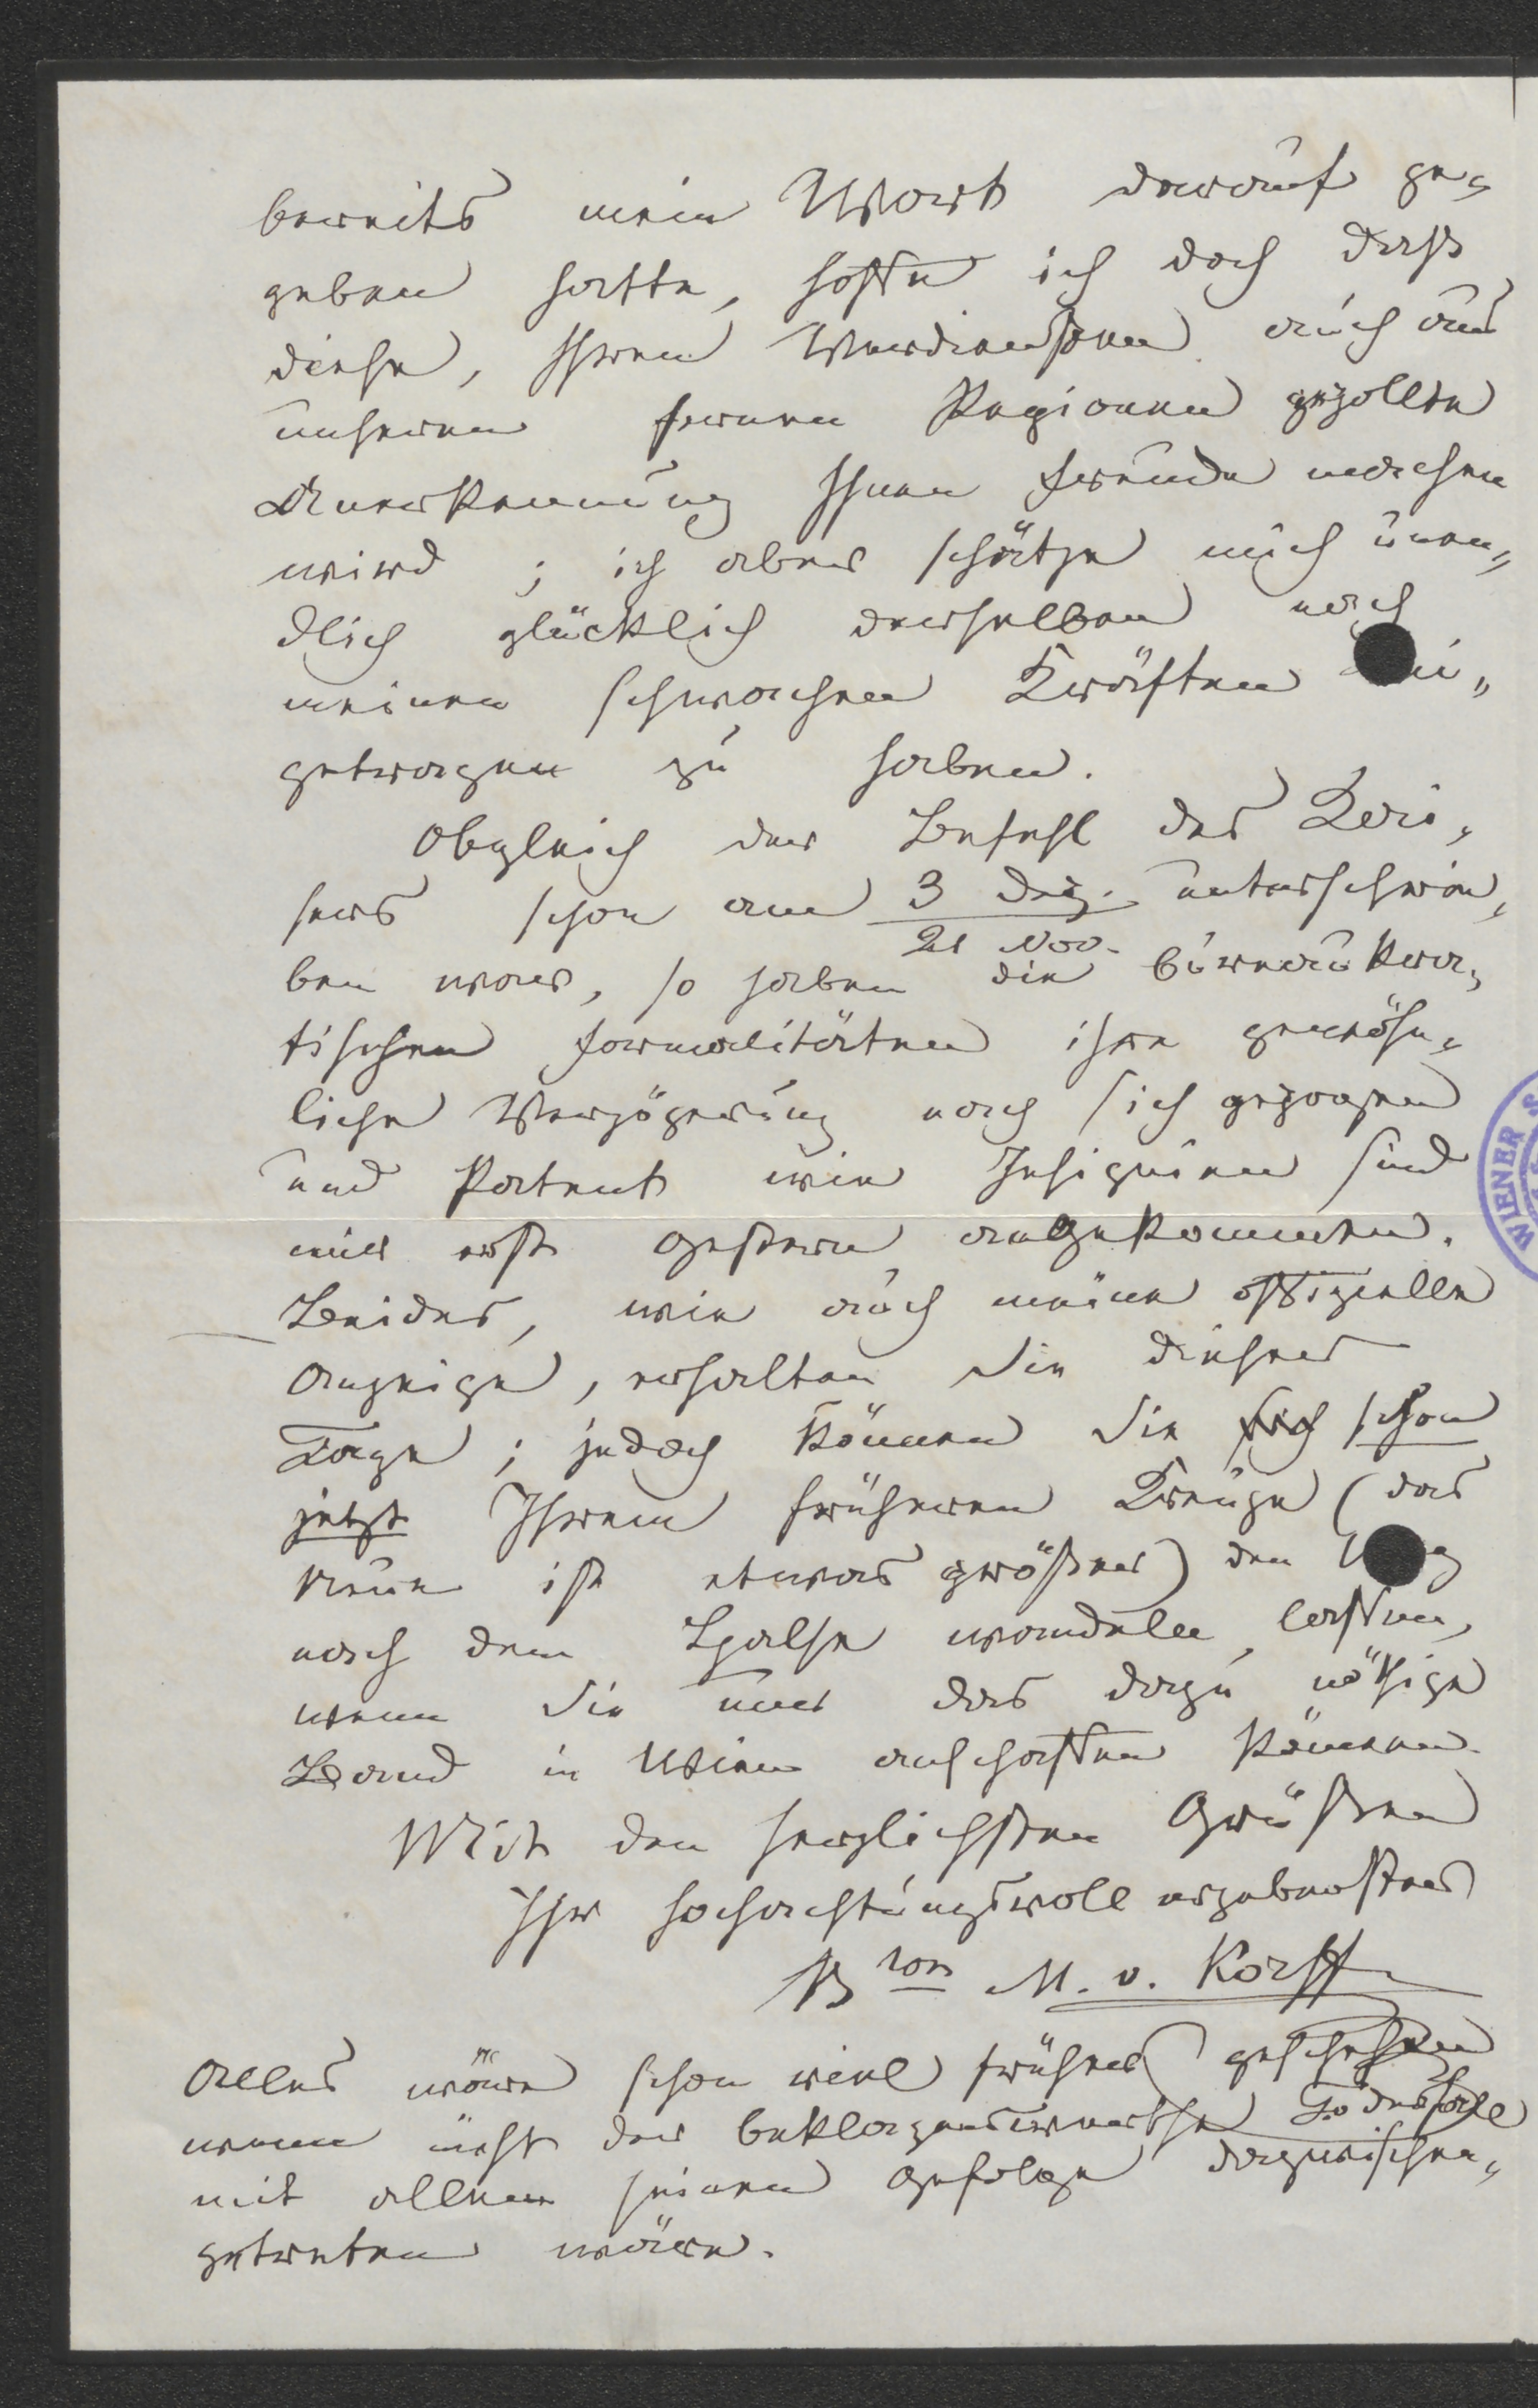 bereits mein Wort darauf ge=
geben hatte, hoffe ich doch daß
diese, Ihren Verdiensten auch aus
unseren fernen Regionen gezollte
Anerkennung Ihnen Freude machen
wird; ich aber schätze mich unen=
dlich glücklich derselben nach
meinen schwachen Kräften bei=
getragen zu haben.
Obgleich der Befehl des Kai=
sers schon am 3 Dez. unterschrie=
21 Nov.
ben war, so haben die büreaukra=
tischen Formalitäten ihre gewöhn=
liche Verzögerung nach sich gezogen
und Patent wie Insignien sind
mir erst gestern angekommen.
Beides, wie auch meine offizielle
Anzeige, erhalten Sie dieser
Tage; jedoch können Sie schon
jetzt Ihrem früheren Kreuze (das
neue ist etwas größer) den Weg
nach dem Halse wandeln lassen,
wenn Sie nur das dazu nöthige
Band in Wien anschaffen können.
Mit den herzlichsten Grüßen
Ihr hochachtungsvoll ergebenster
Bron M. v. Korff
Alles wäre schon viel früher geschehen
wenn nicht der beklagenswerthe Todesfall
mit allem seinen Gefolge dazwischen=
getreten wäre.
WIENER S